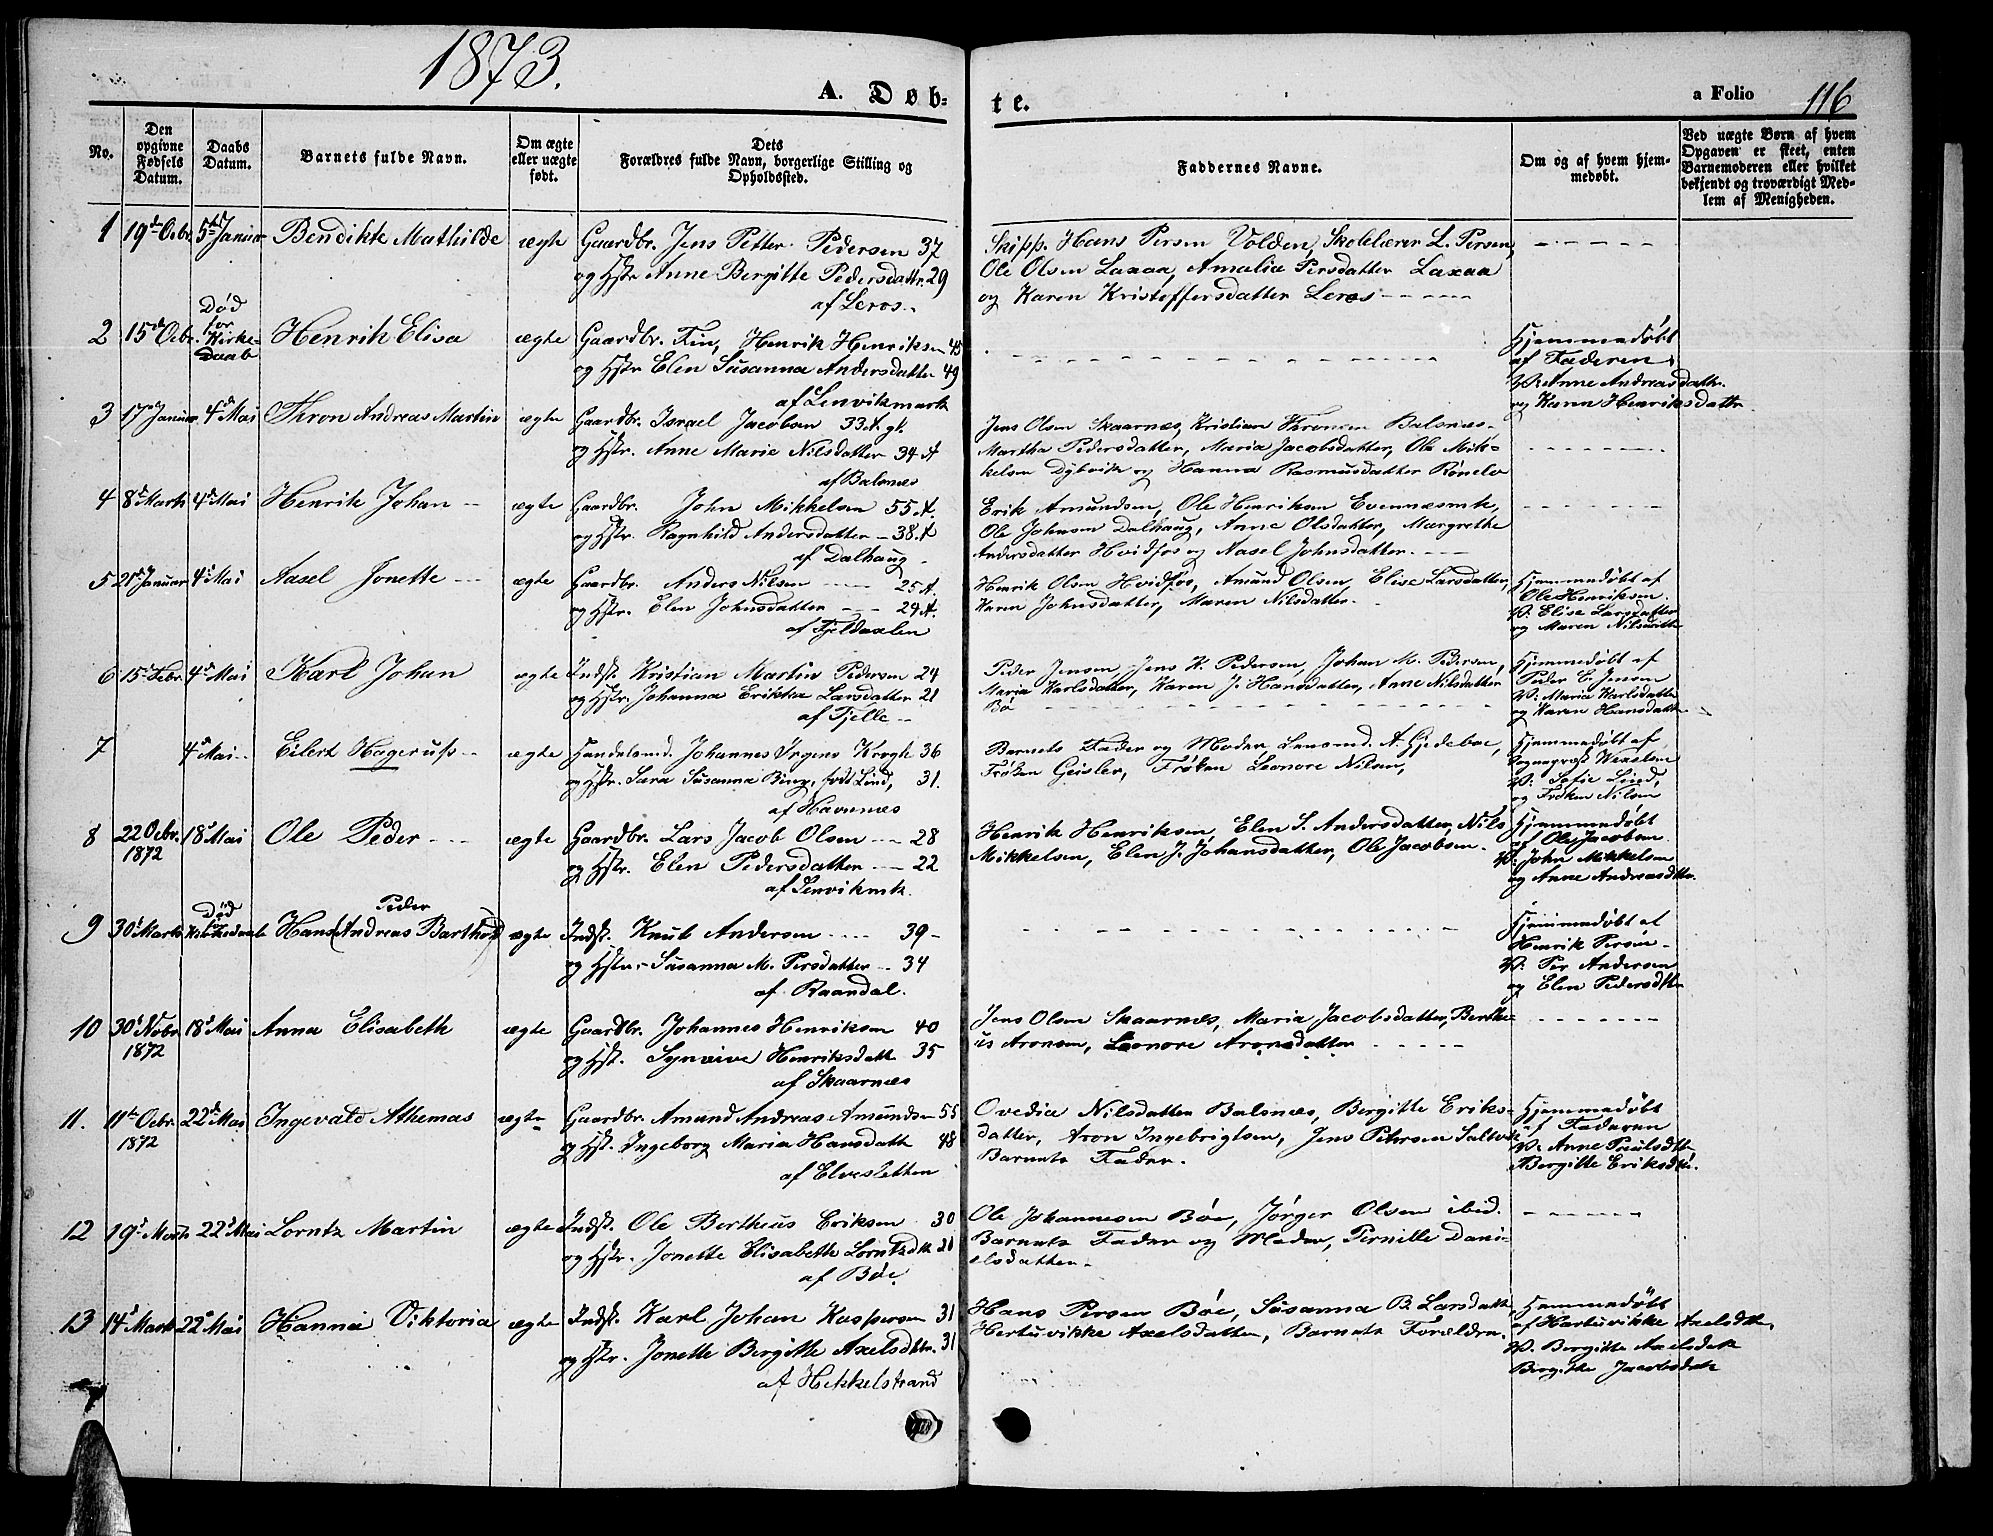 1873.
A. Døb-
te.
a Folio 116
No.
Den opgivne Fødsels Datum.
Daabs Datum.
Barnets fulde Navn.
Om ægte eller uægte født.
Dets Forældres fulde Navn, borgerlige Stilling og Opholdssted.
Faddernes Navne.
Om og af hvem hjemmedøbt.
Ved uægte Børn af hvem Opgaven er skeet, enten Barnemoderen eller hvilket bekjendt og troværdigt Medlem af Menigheden.
1 19de Octbr. 5te Januar Bendikte Mathilde ægte Gaardbr. Jens Petter Pedersen 37
og Hstr Anne Bergitte Pedersdattr. 29
af Leros.
Skipp. Hans Persen Volden, Skolelærer L. Persen,
Ole Olsen Laxaa, Amalia Persdatter Laxaa
og Karen Kristoffersdatter Leros
2 15de Octbr. Død for Kirke-Daab Henrik Elisa ægte Gaardbr. Fin, Henrik Henriksen 45
og Hstr Elen Susanna Andersdatter 49
af Lenvikmark
Hjemmedøbt
af Faderen
V: Anne Andreasdattr.
og Karen Henriksdattr
3 17de Januar 4de Mai Thron Andreas Martin ægte Gaardbr. Israel Jacobsen 33 A. gl.
og Hstr. Anne Marie Nilsdatter 34 A
af Balsnes
Jens Olsen Skaarnæs, Kristian Thronsen Balsnes
Martha Pedersdatter, Maria Jacobsdatter, Ole Mik-
kelsen Dybvik og Hanna Rasmusdatter Rönelv
4 8de Marts 4de Mai Henrik Johan ægte Gaardbr. John Mikkelsen 55 A.
og Hstr. Ragnhild Andersdatter 38. A
af Dalhaug
Erik Amundsen, Ole Henriksen Evenæsmk,
Ole Johnsen Dalhaug, Anne Olsdatter, Margrethe
Andersdatter Hvidfos og Aasel Johnsdatter.
5 21de Januar 4de Mai Aasel Jonette ægte Gaardbr. Anders Nilsen 25 A.
og Hstr. Elen Johnsdatter 29 A.
af Fjeldaxlen
Henrik Olsen Hvidfos, Amund Olsen, Elise Larsdatter,
Karen Johnsdatter, Maren Nilsdatter.
Hjemmedøbt af
Ole Henriksen.
V: Elise Larsdatter
og Maren Nilsdattr
6 15de Febr. 4de Mai Karl Johan ægte Indst. Kristian Martin Pedersen 24
og Hstr. Johanna Erikka Larsdatter 21
af Fjelle
Peder Jensen, Jens K. Pedersen, Johan M. Pedersen,
Maria Karlsdatter, Karen J. Hansdatter, Anne Nilsdatter
Bö
Hjemmedøbt af
Peder C. Jensen
V: Maria Karlsdatter
og Karen Hansdattr
7 4de Mai Eilert Hagerup ægte Handelsmd. Johannes Irgens Krogh 36
og Hstr. Sara Susanna Bing, født Lind, 31.
af Havnnæs
Barnets Fader og Moder, Lensmd. A. Gjedeboe,
Frøken Geisler, Frøken Leonore Nilsen,
Hjemmedøbt af
Sogneprest Wexelsen
V: Sofie Lind,
og Frøken Nilsen
8 22 Octbr. 1872 18de Mai Ole Peder ægte Gaardbr. Lars Jacob Olsen 28
og Hstr. Elen Pedersdatter 22
af Lenvikmk.
Henrik Henriksen, Elen S. Andersdatter, Nils
Mikkelsen, Elen J. Johansdatter, Ole Jacobsen.
Hjemmedøbt
af Ole Jacobsen
V: John Mikkelsen
og Anne Andreasdttr.
9 30de Marts Død for Kirkedaab Hans (Andreas Barthold) Peder ægte Indst. Knut Andersen 39
og Hstr. Susanna M. Persdatter 34
af Raandal.
Hjemmedøbt af
Henrik Persen
V: Per Andersen
og Elen Pedersdttr
10 30de Novbr. 1872 18de Mai Anna Elisabeth ægte Gaardbr. Johannes Henriksen 40
og Hst. Synneive Henriksdatt 35
af Skaarnæs
Jens Olsen Skaarnæs, Maria Jacobsdatter, Berthe-
us Aronsen, Leonore Aronsdatter
11. 11te Octbr. 1872 22de Mai Ingevald Athemas ægte Gaardbr. Amund Andreas Amundsen 55
og Hst. Ingeborg Maria Hansdatt 48
af Elvesletten
Ovedia Nilsdatter Balsnæs, Bergitte Eriks-
datter, Aron Ingebrigtsen, Jens Petersen Saltvik
Barnets Fader.
Hjemmedøbt
af Faderen
V: Anne Paulsdttr
Bergitte Eriksdtr.
12 19de Marts 22de Mai Lorntz Martin ægte Indst. Ole Bertheus Eriksen 30
og Hstr. Jonette Elisabeth Lorntzdtr 21
af Böe
Ole Johannesen Böe, Jørger Olsen ibid.
Barnets Fader og Moder, Pernille Dani-
elsdatter
13 14de Marts 22de Mai Hanna Viktoria ægte Indst. Karl Johan Kaspersen 31
og Hstr. Jonette Bergitte Axelsdttr. 31
af Hekkelstrand
Hans Persen Böe, Susanna B. Larsdatt,
Hertuvikke Axelsdatter, Barnets Forældre.
Hjemmedøbt
af Hartuvikke Axelsdttr.
V. Bergitte Axelsdatt
Bergitte Jacobsdatt